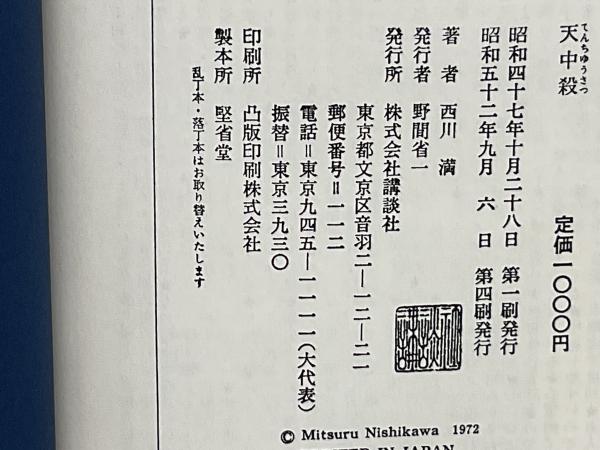 天中殺
てんちゆうさつ
定価一〇〇〇円
昭和四十七年十月二十八日　第一刷発行
昭和五十二年九月　六　日　第四刷発行
著　者　西川　満
発行者　野間省一
発行所　株式会社講談社
東京都文京区音羽二―一二―二一
郵便番号＝一一二
電話＝東京九四五―一一一一(大代表)
振替＝東京三九三〇
印刷所　凸版印刷株式会社
製本所　堅省堂
乱丁本・落丁本はお取り替えいたします
© Mitsuru Nishikawa 1972
PRINTED IN JAPAN